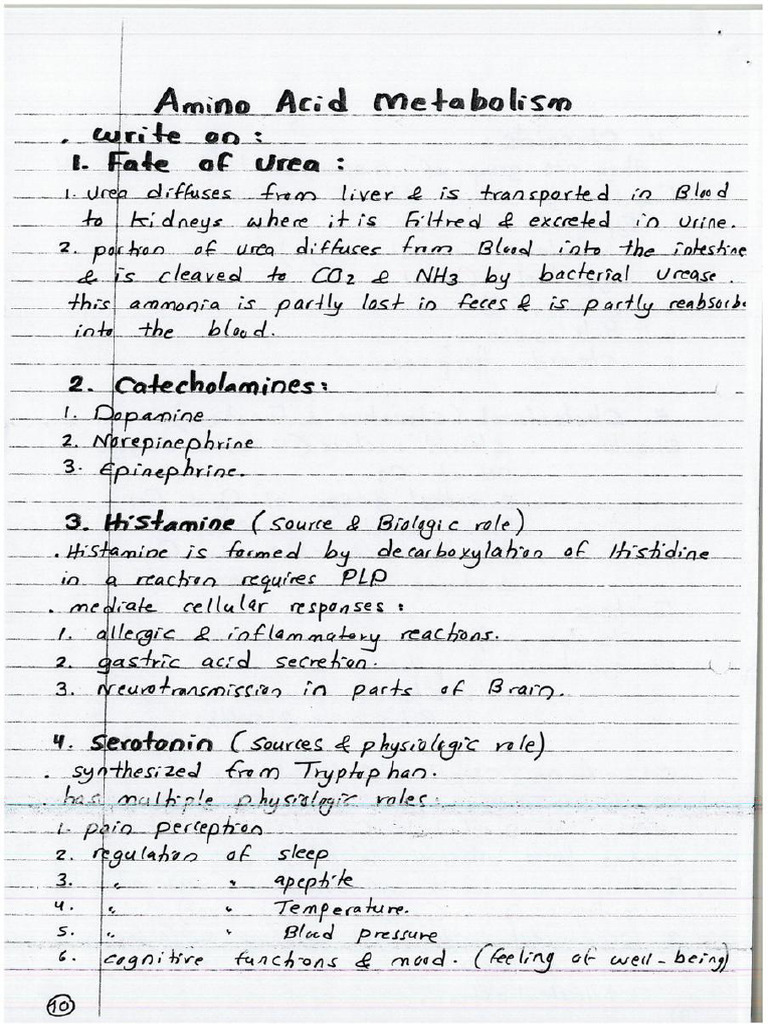 Amino Acid Metabolism
. write on :
1. Fate of Urea :
1. Urea diffuses from liver & is transported in Blood
to kidneys where it is Filtred & excreted in urine.
2. portion of urea diffuses from Blood into the intestine
& is cleaved to CO2 & NH3 by bacterial urease.
this ammonia is partly lost in feces & is partly reabsorbe
into the blood.
2. Catecholamines:
1. Dopamine
2. Norepinephrine
3. Epinephrine.
3. Histamine (source & Biologic role)
. Histamine is formed by decarboxylation of Histidine
in a reaction requires PLP
. mediate cellular responses :
1. allergic & inflammatory reactions.
2. gastric acid secretion.
3. Neurotransmission in parts of Brain.
4. Serotonin (sources & physiologic role)
. synthesized from Tryptophan.
. has multiple physiologic roles:
1. pain perception
2. regulation of sleep
3. " " apeptite
4. " " Temperature.
5. " " Blood pressure
6. cognitive functions & mood. (feeling of well-being)
10